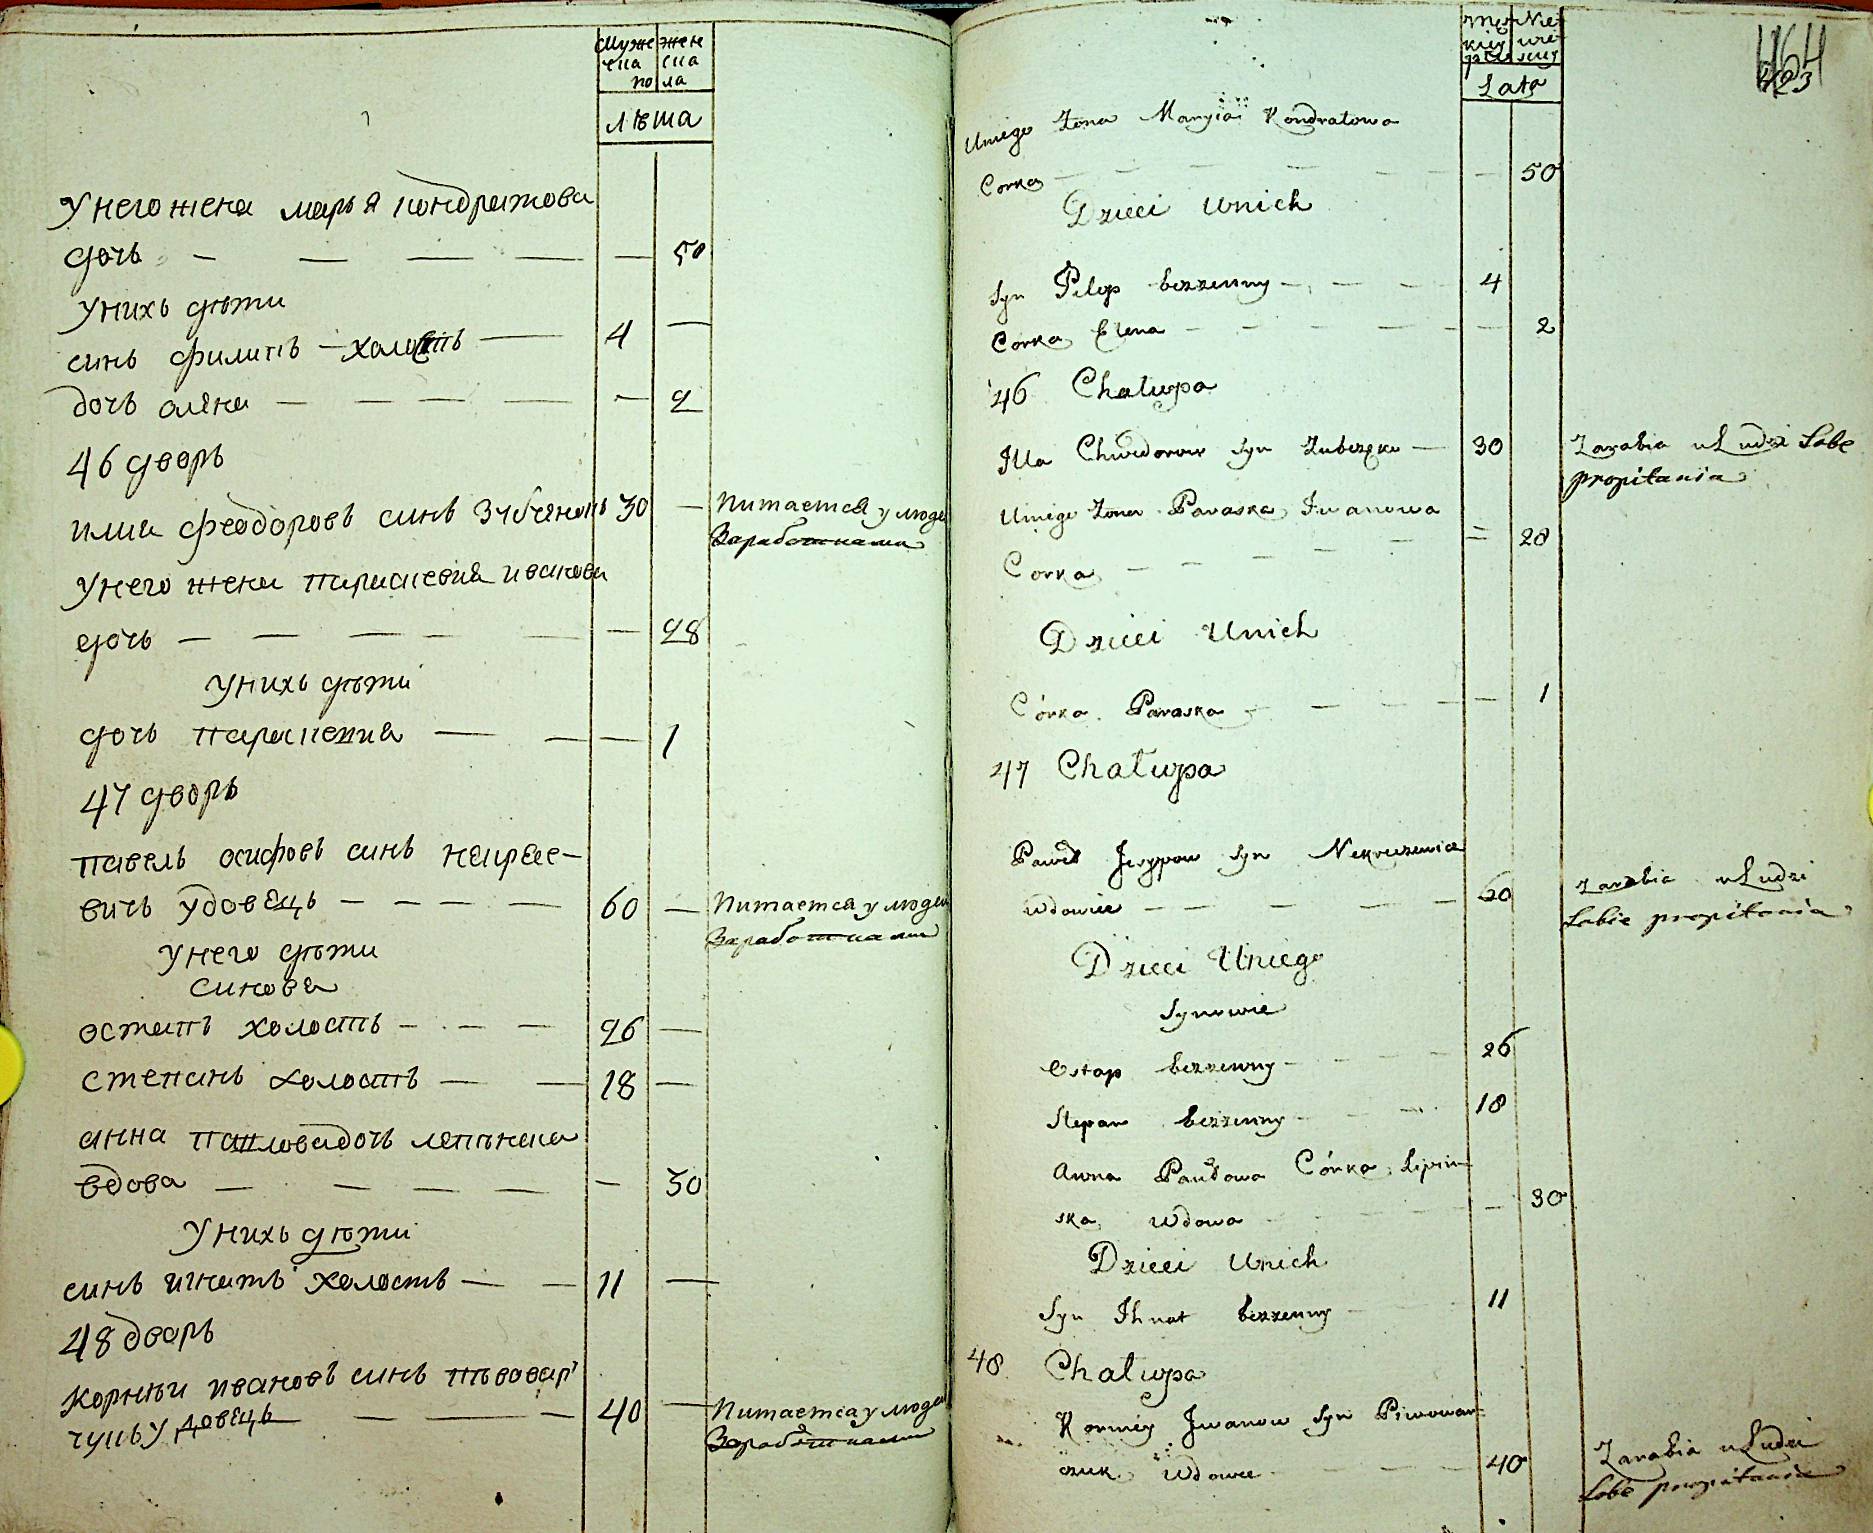 Муже жен
ска ска
по ла
лѣта
У него жена марья кондратова
дочь — — — — — 50
У нихъ дѣти
синъ филипъ — холостъ — 4 —
дочь олена — — — — — 2
46 дворъ
илия феодоровъ синъ Зубченокъ 30 — Питается у людей
Заработками
У него жена параскевия иванова
дочь — — — — — — 28
У нихъ дѣти
дочь параскевия — — — 1
47 дворъ
павелъ осифовъ синъ некрасе-
вичъ удовецъ — — — — 60 — Питается у людей
Заработками
У него дѣти
синове
остапъ холостъ — — — 26 —
степанъ холостъ — — 18 —
анна павловадочь
вдова — — — — — 30
У нихъ дѣти
синъ игнатъ холостъ — — 11 —
48 дворъ
Корнѣи ивановъ синъ пѣвовар
чукъ удовецъ — — — 40 — Питается у людей
Заработками
464
423
Męz Nie
kiey wie
sciey
Lata
Uniego Żona Maryia Kondratowa
Corka — — — — — — 50
Dzieci Unich
Syn Pilip bezzenny — — — 4
Corka Elena — — — — — — 2
46 Chałupa
Illa Chwedorow Syn Zubczęko — 30 Zarabia u Ludzi Sobe
propitania
Uniego Żona Paraska Iwanowa
Corka — — — — = 28
Dzieci Unich
Córka Paraska — — — — 1
47 Chałupa
Paweł Jozypow Syn Nekraszewicz
wdowiec — — — — — 60 Zarabia u Ludzi
Sobie propitania
Dzieci Uniego
Synowie
Ostap bezzenny — — — — 26
Stepan bezzenny — — — 18
Anna Pawłowa Córka Lipin-
ska wdowa — — — — — 30
Dzieci Unich
Syn Ihnat bezzenny — — 11
48 Chałupa
Korniey Iwanow Syn Piwowar=
czuk Wdowiec — — — 40 Zarabia u Ludzi
Sobe propitania